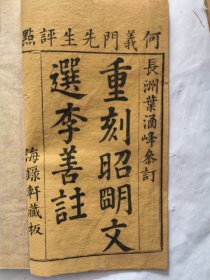 何義門先生評點
長洲葉涵峰參訂
重刻昭明文
選李善註
海錄軒藏板